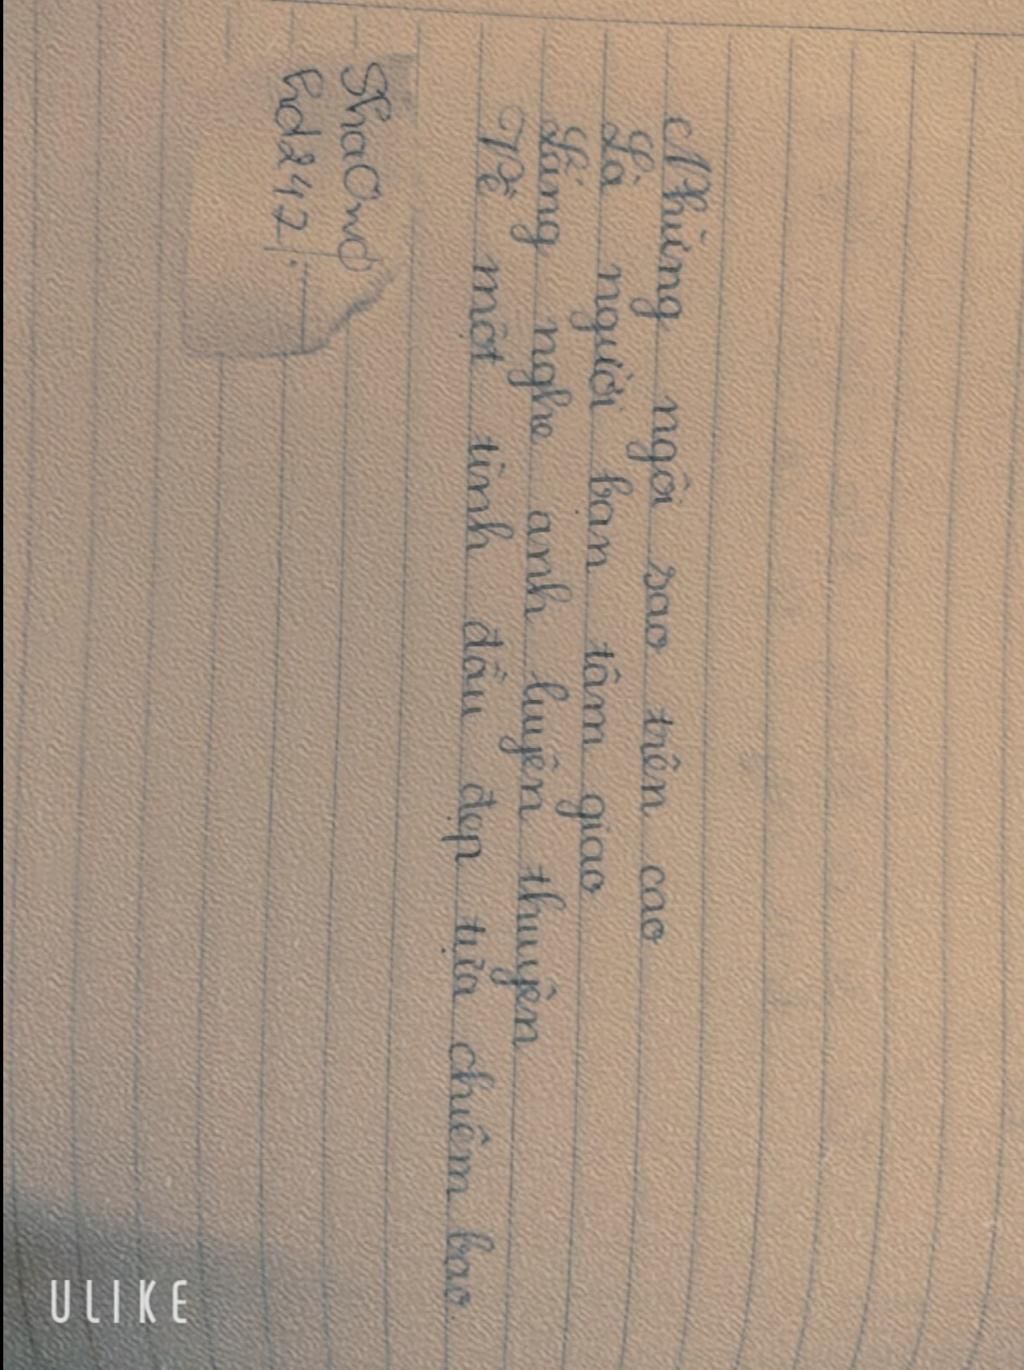 Những ngôi sao trên cao
Là người bạn tâm giao
Lắng nghe anh luyên thuyên
Về một tình đầu đẹp tựa chiêm bao
ULIKE